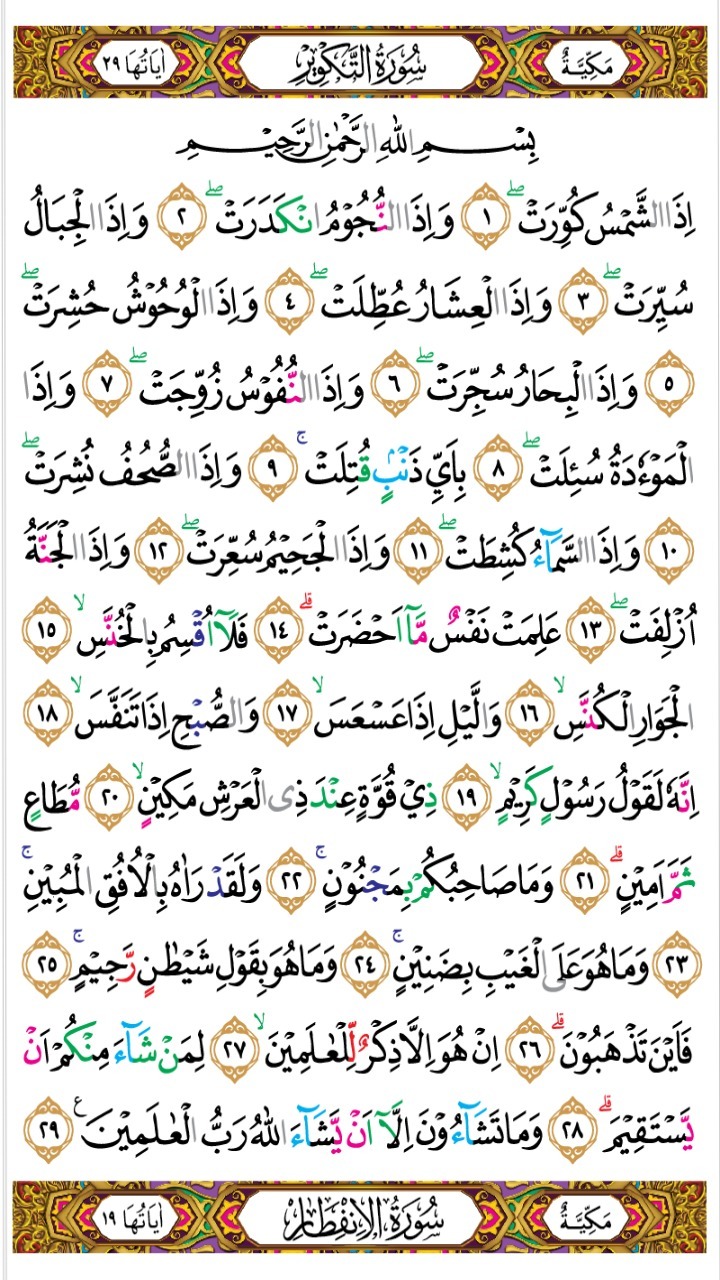 مَكِّيَّةٌ سُوْرَةُ التَّكْوِيْرِ اٰيَاتُهَا ٢٩
بِسْمِ اللّٰهِ الرَّحْمٰنِ الرَّحِيْمِ
اِذَا الشَّمْسُ كُوِّرَتْۖ ١ وَاِذَا النُّجُوْمُ انْكَدَرَتْۖ ٢ وَاِذَا الْجِبَالُ
سُيِّرَتْۖ ٣ وَاِذَا الْعِشَارُ عُطِّلَتْۖ ٤ وَاِذَا الْوُحُوْشُ حُشِرَتْۖ
٥ وَاِذَا الْبِحَارُ سُجِّرَتْۖ ٦ وَاِذَا النُّفُوْسُ زُوِّجَتْۖ ٧ وَاِذَا
الْمَوْءٗدَةُ سُئِلَتْۖ ٨ بِاَيِّ ذَنْۢبٍ قُتِلَتْۚ ٩ وَاِذَا الصُّحُفُ نُشِرَتْۖ
١٠ وَاِذَا السَّمَاۤءُ كُشِطَتْۖ ١١ وَاِذَا الْجَحِيْمُ سُعِّرَتْۖ ١٢ وَاِذَا الْجَنَّةُ
اُزْلِفَتْۖ ١٣ عَلِمَتْ نَفْسٌ مَّآ اَحْضَرَتْۗ ١٤ فَلَآ اُقْسِمُ بِالْخُنَّسِۙ ١٥
الْجَوَارِ الْكُنَّسِۙ ١٦ وَالَّيْلِ اِذَا عَسْعَسَۙ ١٧ وَالصُّبْحِ اِذَا تَنَفَّسَۙ ١٨
اِنَّهٗ لَقَوْلُ رَسُوْلٍ كَرِيْمٍۙ ١٩ ذِيْ قُوَّةٍ عِنْدَ ذِى الْعَرْشِ مَكِيْنٍۙ ٢٠ مُّطَاعٍ
ثَمَّ اَمِيْنٍۗ ٢١ وَمَا صَاحِبُكُمْ بِمَجْنُوْنٍۚ ٢٢ وَلَقَدْ رَاٰهُ بِالْاُفُقِ الْمُبِيْنِۚ
٢٣ وَمَا هُوَ عَلَى الْغَيْبِ بِضَنِيْنٍۚ ٢٤ وَمَا هُوَ بِقَوْلِ شَيْطٰنٍ رَّجِيْمٍۚ ٢٥
فَاَيْنَ تَذْهَبُوْنَۗ ٢٦ اِنْ هُوَ اِلَّا ذِكْرٌ لِّلْعٰلَمِيْنَۙ ٢٧ لِمَنْ شَاۤءَ مِنْكُمْ اَنْ
يَّسْتَقِيْمَۗ ٢٨ وَمَا تَشَاۤءُوْنَ اِلَّآ اَنْ يَّشَاۤءَ اللّٰهُ رَبُّ الْعٰلَمِيْنَ ࣖ ٢٩
مَكِّيَّةٌ سُوْرَةُ الْاِنْفِطَارِ اٰيَاتُهَا ١٩